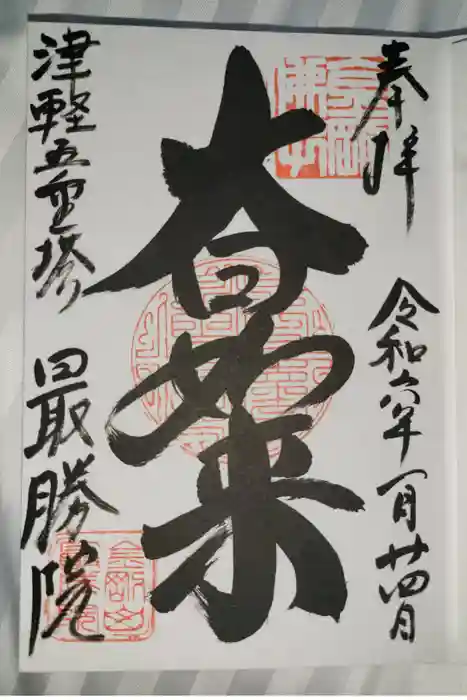 奉拝
令和六年一月廿四日
大日如来
津軽五重塔
最勝院